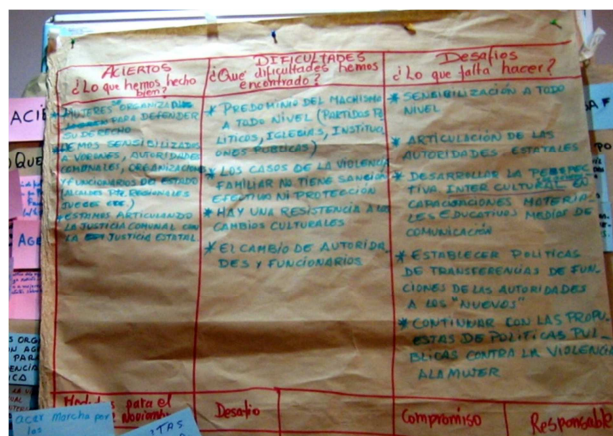 ACIERTOS
¿Lo que hemos hecho
bien?
MUJERES ORGANIZADAS
PARA DEFENDER
SU DERECHO
HEMOS SENSIBILIZADO
A VARONES, AUTORIDADES
COMUNALES, ORGANIZACION
Y FUNCIONARIOS DEL ESTADO
LOCALES REGIONALES
JUECES
* ESTAMOS ARTICULANDO
LA JUSTICIA COMUNAL CON
LA JUSTICIA ESTATAL
DIFICULTADES
¿Que dificultades hemos
encontrado?
* PREDOMINIO DEL MACHISMO
A TODO NIVEL (PARTIDOS PO
LITICOS, IGLESIAS, INSTITUCI
ONES PUBLICAS)
* LOS CASOS DE LA VIOLENCIA
FAMILIAR NO TIENE SANCIÓN
EFECTIVO NI PROTECCIÓN
* HAY UNA RESISTENCIA A LOS
CAMBIOS CULTURALES
* EL CAMBIO DE AUTORIDA
DES Y FUNCIONARIOS
Desafios
¿Lo que falta hacer?
* SENSIBILIZACIÓN A TODO
NIVEL
* ARTICULACIÓN DE LAS
AUTORIDADES ESTATALES
* DESARROLLAR LA PERSPEC
TIVA INTER CULTURAL EN
CAPACITACIONES MATERIA
LES EDUCATIVOS MEDIOS DE
COMUNICACIÓN
* ESTABLECER POLITICAS
DE TRANSFERENCIAS DE FUN
CIONES DE LAS AUTORIDADES
A LOS "NUEVOS"
* CONTINUAR CON LAS PROPU
ESTAS DE POLITICAS PU
BLICAS CONTRA LA VIOLENCIA
A LA MUJER
para el
Noviembre
Desafio
Compromiso
Responsable
marcha por
los